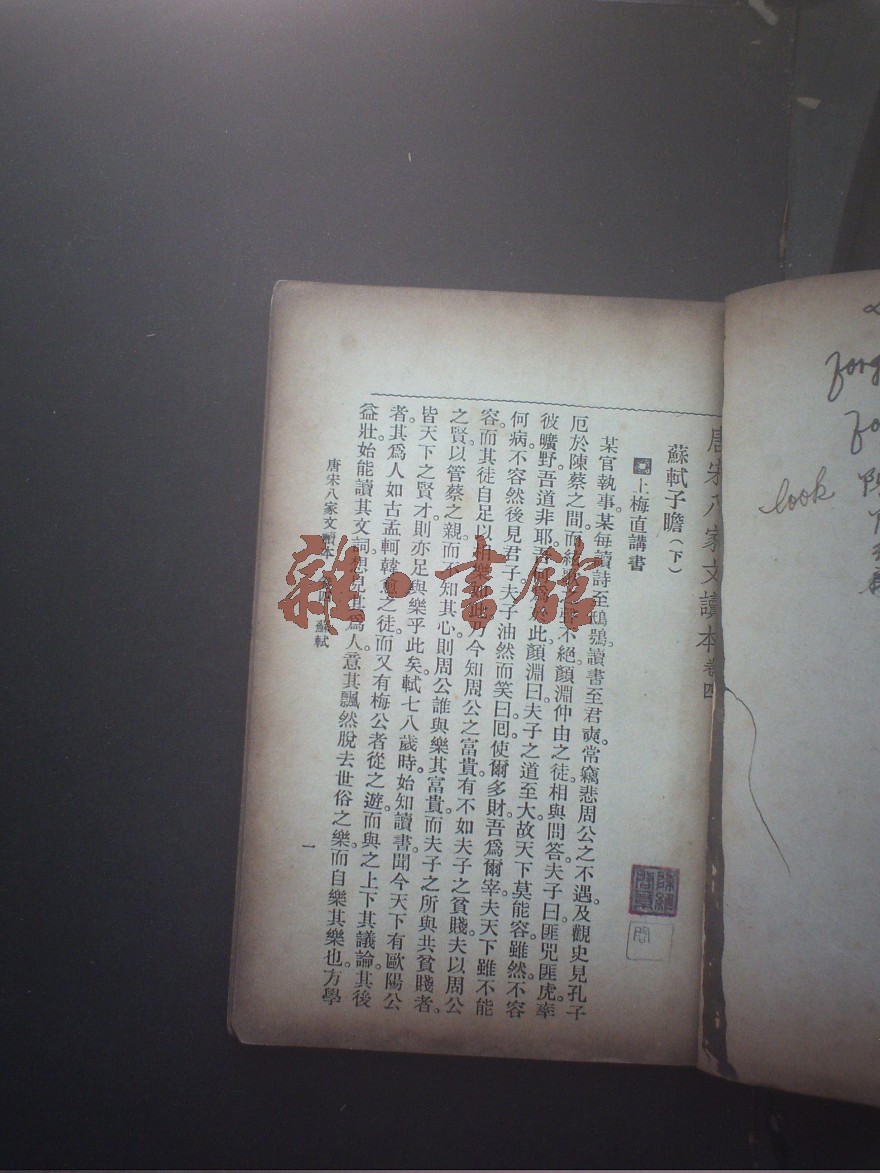 唐宋八家文讀本 卷四
蘇軾子瞻(下)
上梅直講書
某官執事。某每讀詩至鴟鴞。讀書至君奭。常竊悲周公之不遇。及觀史見孔子
厄於陳蔡之間。而絃歌之聲不絕。顏淵仲由之徒。相與問答。夫子曰。匪兕匪虎。率
彼曠野。吾道非耶。吾何爲於此。顏淵曰。夫子之道至大。故天下莫能容。雖然。不容
何病。不容然後見君子。夫子油然而笑曰。回。使爾多財。吾爲爾宰。夫天下雖不能
容。而其徒自足以相樂如此。乃今知周公之富貴。有不如夫子之貧賤。夫以周公
之賢。以管蔡之親。而不知其心。則周公誰與樂其富貴。而夫子之所與共貧賤者。
皆天下之賢才。則亦足與樂乎此矣。軾七八歲時。始知讀書。聞今天下有歐陽公
者。其爲人如古孟軻韓愈之徒。而又有梅公者從之遊。而與之上下其議論。其後
益壯。始能讀其文詞。想見其爲人。意其飄然脫去世俗之樂。而自樂其樂也。方學
唐宋八家文讀本 卷四 蘇軾
一
雜·書館
look